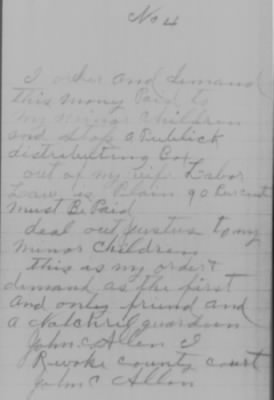 No 4
I order and demand
this money Paid to
my minor children
and stop a Publick
distributing Co
out of my wife Labor
Law is Plain 90 Percent
Must Be Paid
deal out justus to my
minor children
this is my order &
demand as the first
and only friend and
a Natchril guardeen
John C Allen I
Rewoke county court
John C Allen